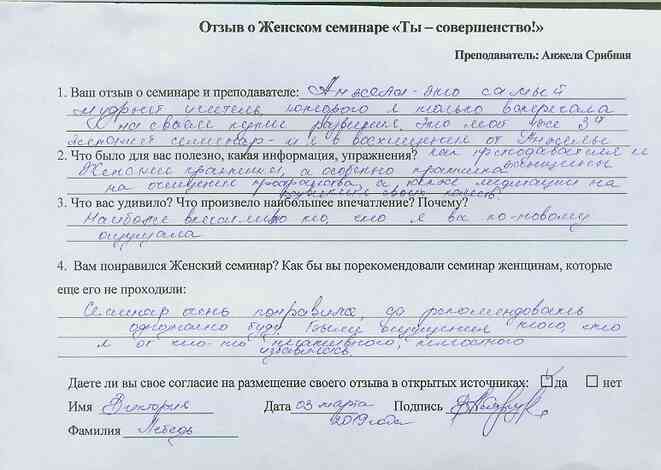 Отзыв о Женском семинаре «Ты – совершенство!»
Преподаватель: Анжела Срибная
1. Ваш отзыв о семинаре и преподавателе: Анжела - это самый
мудрый учитель, которого я только встречала
на своём пути развития. Это мой уже 3й
женский семинар и я в восхищении от Анжелы
2. Что было для вас полезно, какая информация, упражнения? как преподавателя и
женщины
Женские практики, а особенно практика
на очищение пространства, а также медитации на
своих
3. Что вас удивило? Что произвело наибольшее впечатление? Почему?
Наиболее впечатлило то, что я всё по-новому
ощущала
4. Вам понравился Женский семинар? Как бы вы порекомендовали семинар женщинам, которые
еще его не проходили:
Семинар очень понравился, да рекомендовать
однозначно буду. Были ощущения того, что
я от чего-то негативного,
избавилась
Даете ли вы свое согласие на размещение своего отзыва в открытых источниках: да нет
Имя Виктория Дата 03 марта Подпись
2019 года
Фамилия Лебедь